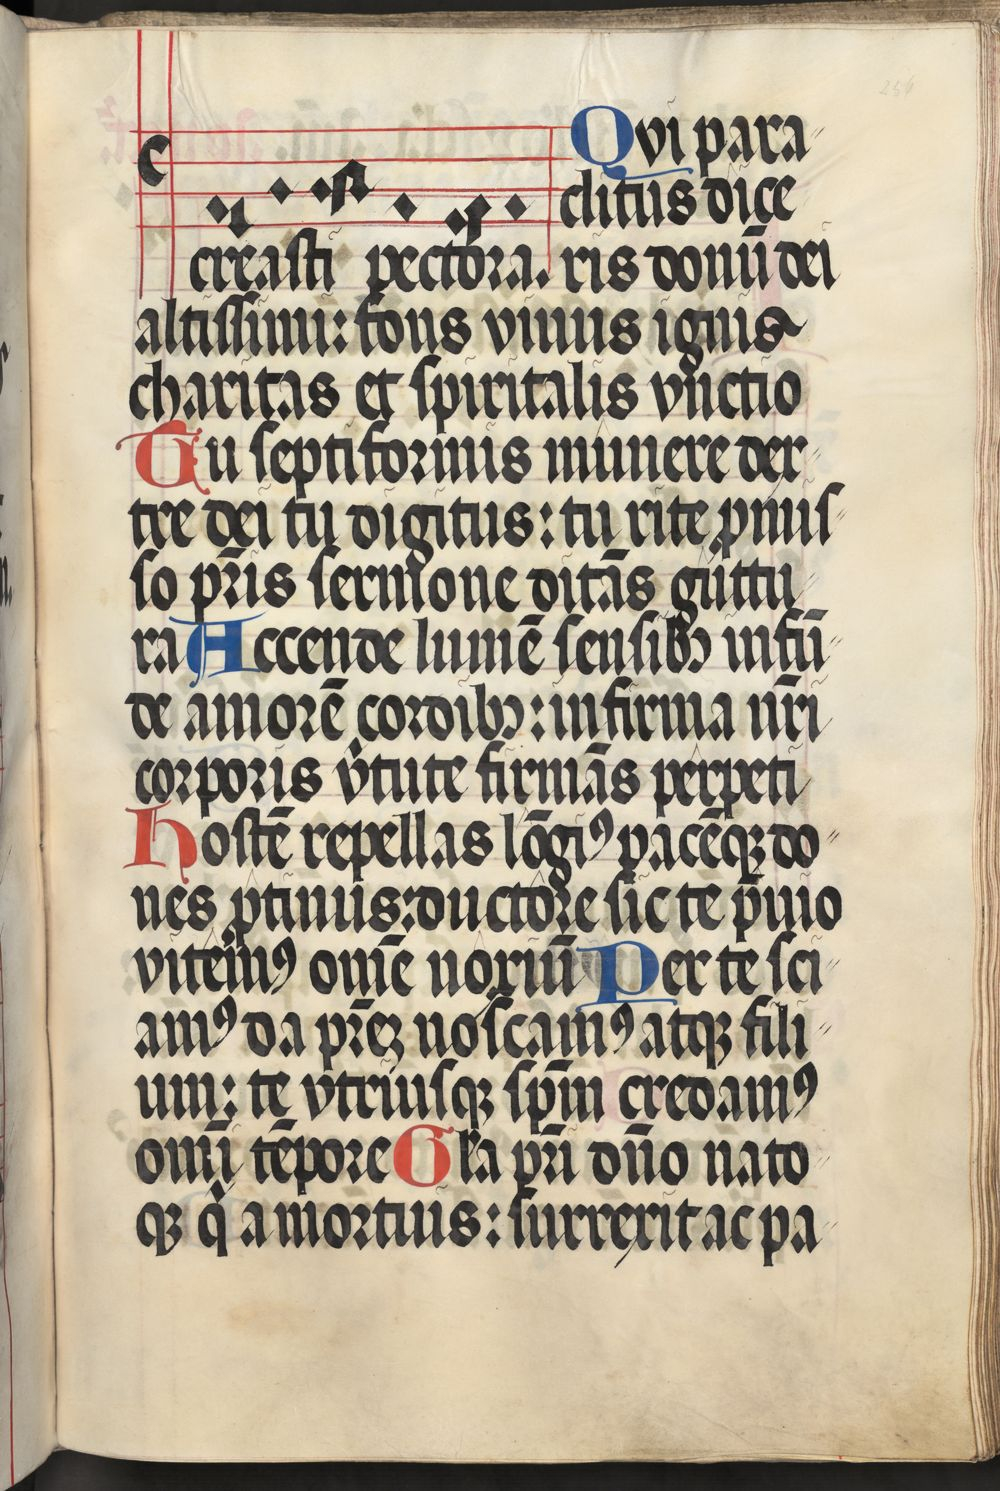 Qvi para〃
clitus dice
creasti pectora. ris donū dei
altissimi: fons viuus ignis
charitas et spiritalis vnctio
Tu septiformis munere dex〃
tre dei tu digitus: tu rite pmis〃
so pr̄is sermone ditās guttu〃
ra Accende lumē sensibꝫ infū〃
de amorē cordibꝫ: infirma nr̄i
corporis v̓tute firmās perpeti
Hostē repellas lōgiꝰ pacēqꝫ do〃
nes ptinus: ductore sic te pͥuio
vitemꝰ omē noxiū Per te sci〃
amꝰ da pr̄eꝫ noscamꝰ atqꝫ fili〃
um: te vtriusqꝫ sp̄m credamꝰ
omī tēpore Gl̄a pr̄i dn̄o nato〃
qꝫ qͥ a mortuis: surrexit ac pa〃